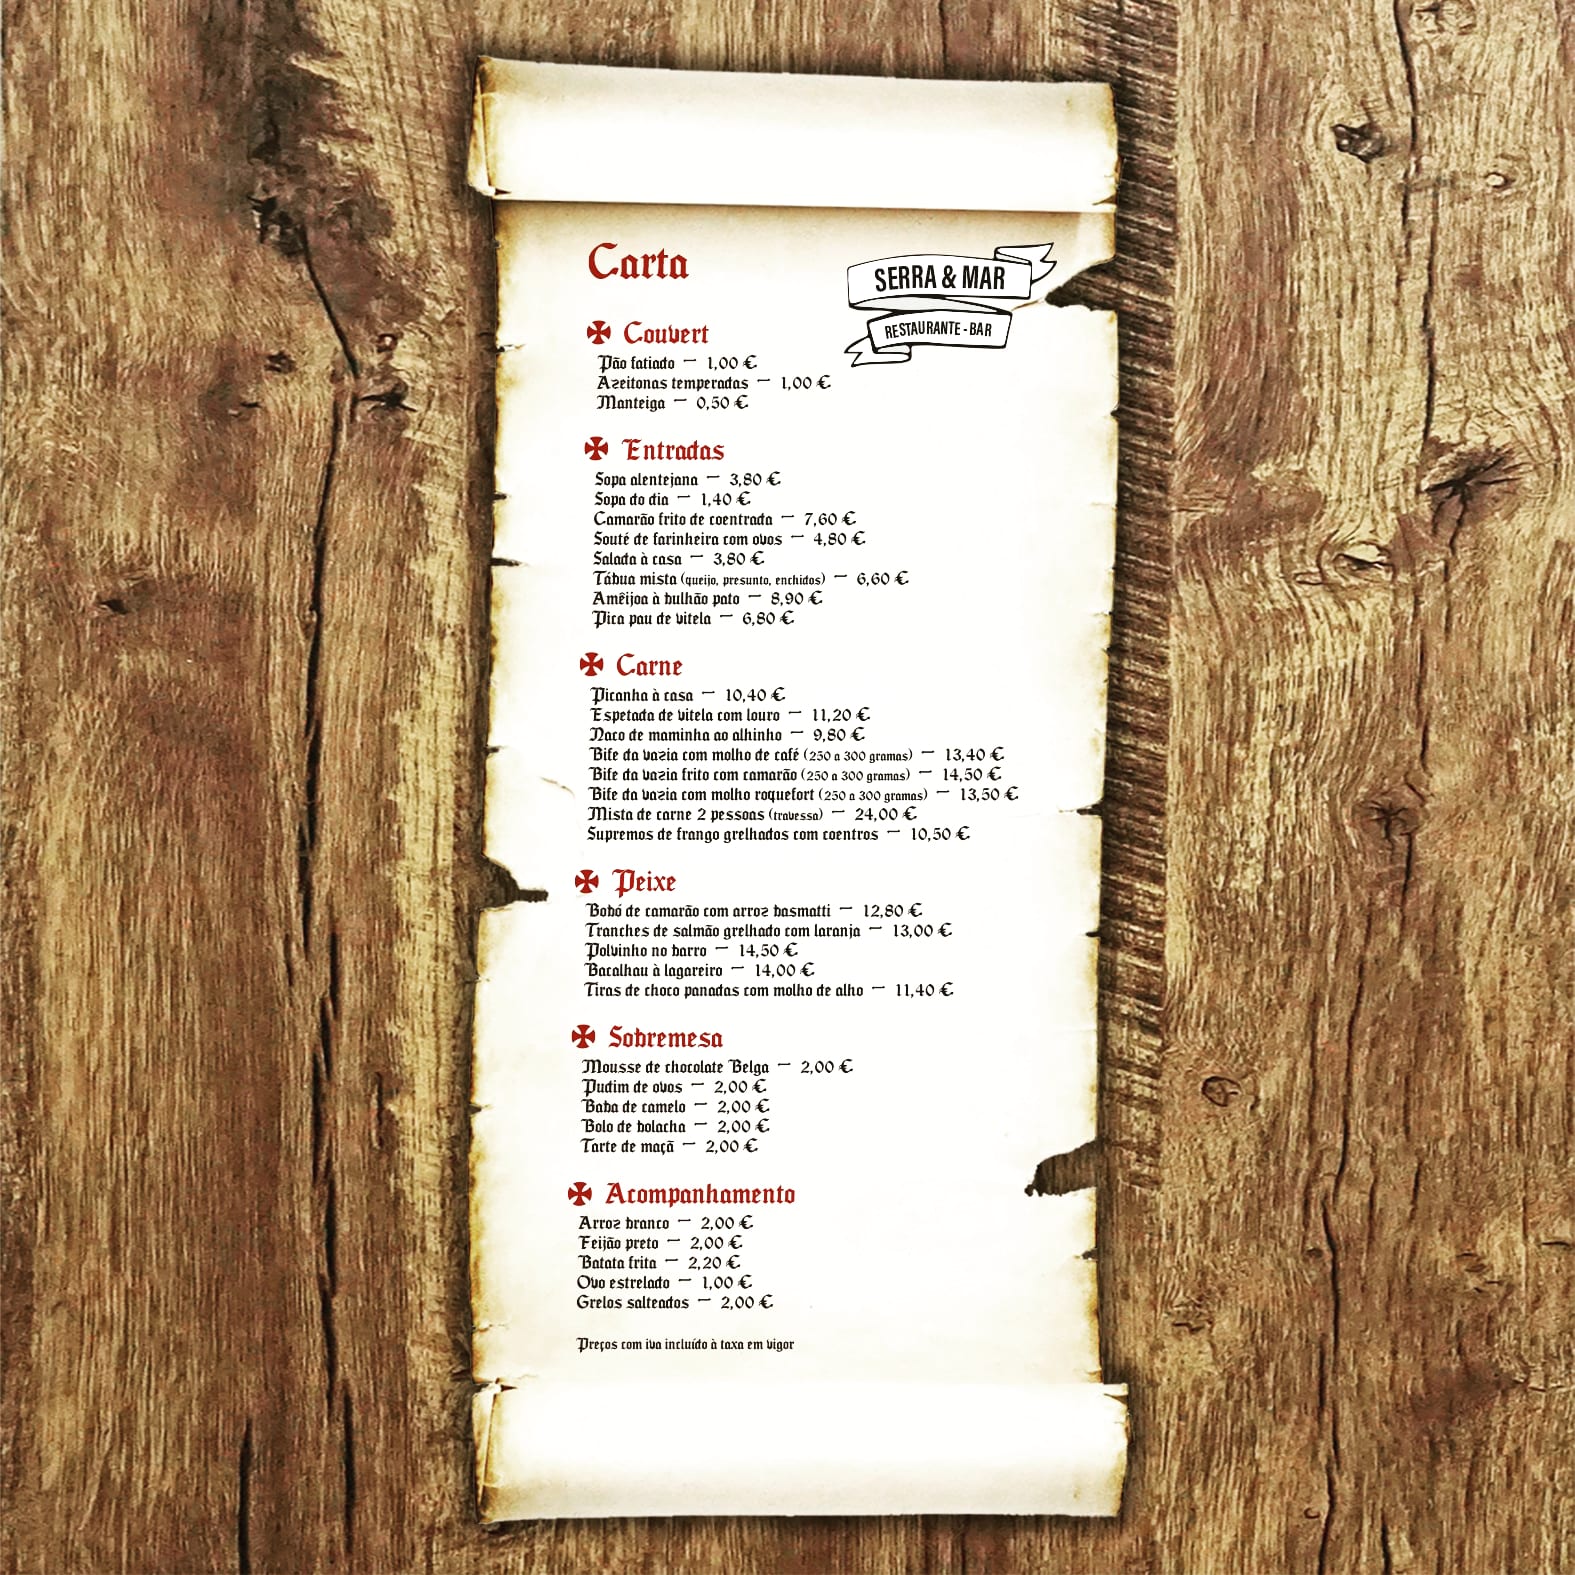 Carta
SERRA & MAR
RESTAURANTE - BAR
Couvert
Pão fatiado — 1,00 €
Azeitonas temperadas — 1,00 €
Manteiga — 0,50 €
Entradas
Sopa alentejana — 3,80 €
Sopa do dia — 1,40 €
Camarão frito de coentrada — 7,60 €
Souté de farinheira com ovos — 4,80 €
Salada à casa — 3,80 €
Tábua mista (queijo, presunto, enchidos) — 6,60 €
Amêijoa à bulhão pato — 8,90 €
Pica pau de vitela — 6,80 €
Carne
Picanha à casa — 10,40 €
Espetada de vitela com louro — 11,20 €
Naco de maminha ao alhinho — 9,80 €
Bife da vazia com molho de café (250 a 300 gramas) — 13,40 €
Bife da vazia frito com camarão (250 a 300 gramas) — 14,50 €
Bife da vazia com molho roquefort (250 a 300 gramas) — 13,50 €
Mista de carne 2 pessoas (travessa) — 24,00 €
Supremos de frango grelhados com coentros — 10,50 €
Peixe
Bobó de camarão com arroz basmatti — 12,80 €
Tranches de salmão grelhado com laranja — 13,00 €
Polvinho no barro — 14,50 €
Bacalhau à lagareiro — 14,00 €
Tiras de choco panadas com molho de alho — 11,40 €
Sobremesa
Mousse de chocolate Belga — 2,00 €
Pudim de ovos — 2,00 €
Baba de camelo — 2,00 €
Bolo de bolacha — 2,00 €
Tarte de maçã — 2,00 €
Acompanhamento
Arroz branco — 2,00 €
Feijão preto — 2,00 €
Batata frita — 2,20 €
Ovo estrelado — 1,00 €
Grelos salteados — 2,00 €
Preços com iva incluído à taxa em vigor